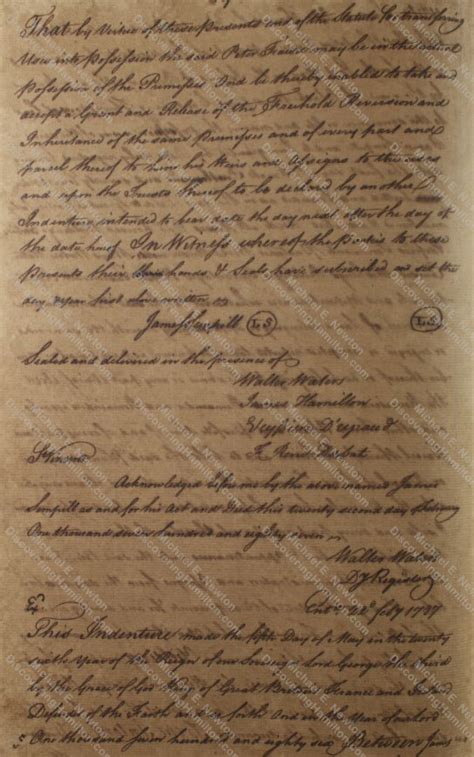 That by Virtue of these Presents and of the Statute for transferring
Uses into Possession the said Peter may be in the actual
Possession of the Premisses And be thereby enabled to take and
accept a Grant and Release of the Freehold Reversion and
Inheritance of the same Premisses and of every part and
parcel thereof to him his Heirs and Assigns to the uses
and upon the Trusts thereof to be declared by another
Indenture intended to bear date the day next after the day of
the date hereof In Witness whereof the Parties to these
Presents their hands & Seals have subscribed and set the
day & year first above written
James LS LS
Sealed and delivered in the presence of
Walter Waters
James Hamilton

St Vincent
Acknowledged before me by the above named James
as and for his Act and Deed this twenty second day of February
One thousand seven hundred and eighty seven
Walter Waters
Dy Register
Entd 22d feby 1787
This Indenture made the fifth Day of May in the twenty
sixth Year of the Reign of our Sovereign Lord George the third
by the Grace of God King of Great Britain France and Ireland
Defender of the Faith and so forth And in the Year of our Lord
One thousand seven hundred and eighty six Between James
Michael E. Newton
DiscoveringHamilton.com